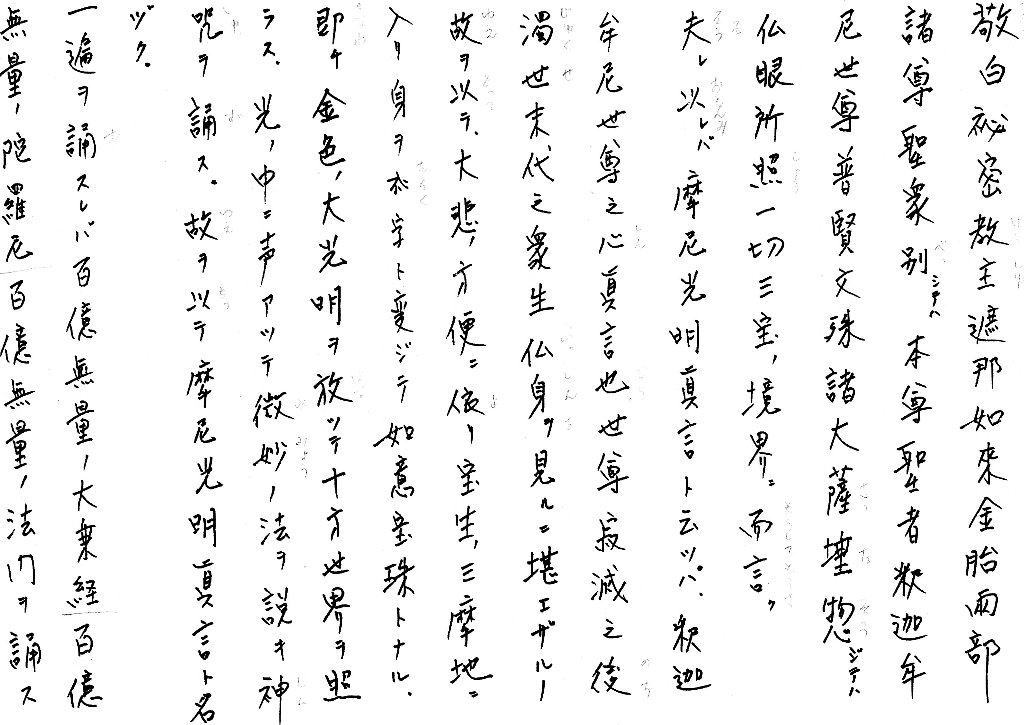 敬白祕密教主遮那如來金胎兩部
諸尊聖衆別シテハ本尊聖者釈迦牟
尼世尊普賢文殊諸大薩埵惣ジテハ
仏眼所照一切三宝ノ境界ニ而言ク
夫レ以レバ摩尼光明真言ト云ッパ、釈迦
牟尼世尊之心真言也世尊寂滅之後
濁世末代之衆生仏身ヲ見ルニ堪エザルノ
故ヲ以テ、大悲ノ方便ニ依リ宝生ノ三摩地ニ
入リ身ヲ字ト変ジテ如意宝珠トナル。
即チ金色ノ大光明ヲ放ッテ十方世界ヲ照
ラス。光ノ中ニ声アッテ微妙ノ法ヲ説キ神
咒ヲ誦ス。故ヲ以テ摩尼光明真言ト名
ヅク。
一遍ヲ誦スレバ百億無量ノ大乗経百億
無量ノ陀羅尼百億無量ノ法門ヲ誦ス